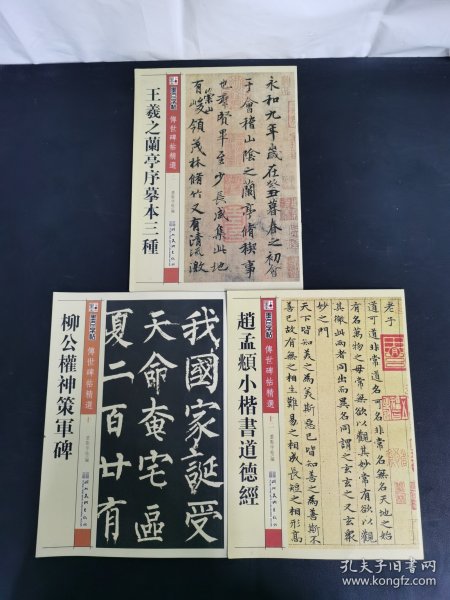 王羲之蘭亭序摹本三種
墨点字帖
傳世碑帖精選
墨點字帖編
永和九年歲在癸丑暮春之初會
于會稽山陰之蘭亭脩稧事
也羣賢畢至少長咸集此地
有崇山
峻領茂林脩竹又有清流激
柳公權神策軍碑
墨点字帖
傳世碑帖精選
墨點字帖編
我國家誕受
天命奄宅區
夏二百廿有
趙孟頫小楷書道德經
墨点字帖
傳世碑帖精選
十二
墨點字帖編
老子
道可道非常道名可名非常名無名天地之始
有名萬物之母常無欲以觀其妙常有欲以觀
其徼此兩者同出而異名同謂之玄玄之又玄衆
妙之門
天下皆知美之為美斯惡已皆知善之為善斯不
善已故有無之相生難易之相成長短之相形高
孔夫子旧书网